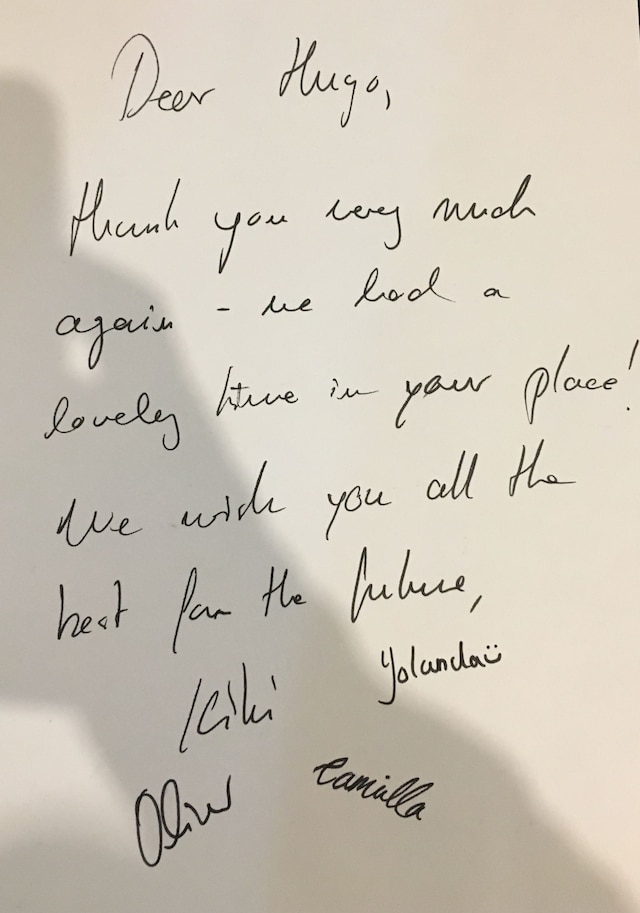 Dear Hugo,
thank you very much
again - we had a
lovely time in your place!
We wish you all the
best for the future,
Kiki Yolanda ü
Oliver Camilla